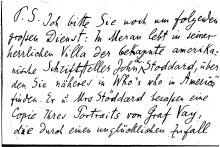 P.S. Ich bitte Sie noch um folgenden
großen Dienst: In Meran lebt in seiner
herrlichen Villa der bekannte amerika-
nische Schriftsteller John L. Stoddard, über
den Sie näheres in Who's who in America
finden. Er u. Mrs Stoddard besaßen eine
Copie Ihres Portraits von Graf Vay,
die durch einen unglücklichen Zufall